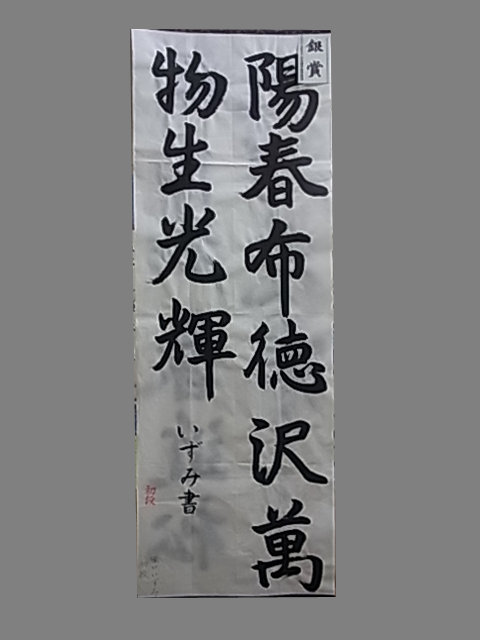 銀賞
陽春布徳沢萬
物生光輝
いずみ書
初段